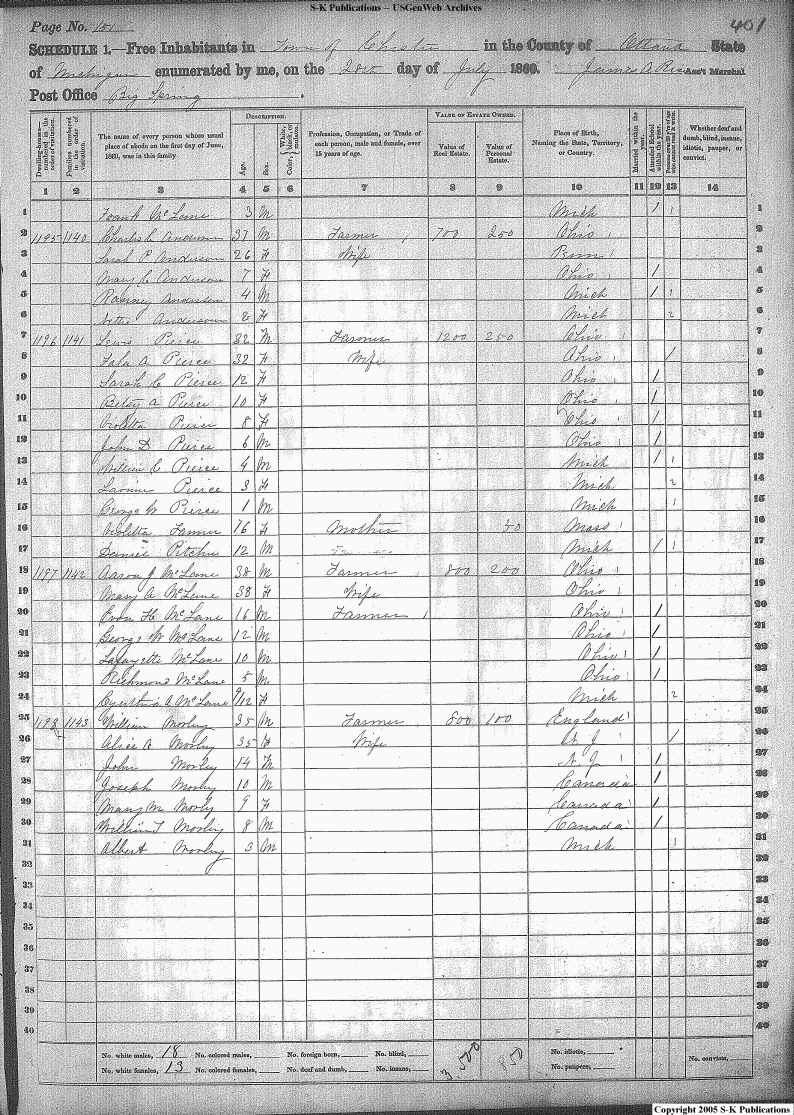 S-K Publications -- USGenWeb Archives
Page No. 101
401
SCHEDULE 1.—Free Inhabitants in Town of Chester in the County of Ottawa State
of Michigan enumerated by me, on the day of July 1860. James A Ass't Marshal
Post Office Big Spring
Dwelling-houses— numbered in the order of visitation.
Families numbered in the order of visitation.
The name of every person whose usual place of abode on the first day of June, 1860, was in this family.
DESCRIPTION.
Age.
Sex.
Color, White, black, or mulatto.
Profession, Occupation, or Trade of each person, male and female, over 15 years of age.
VALUE OF ESTATE OWNED.
Value of Real Estate.
Value of Personal Estate.
Place of Birth, Naming the State, Territory, or Country.
Married within the year.
Attended School within the year.
Persons over 20 y'rs of age who cannot read & write.
Whether deaf and dumb, blind, insane, idiotic, pauper, or convict.
1 2 3 4 5 6 7 8 9 10 11 12 13 14
1 Frank McLane 3 M Mich / 1 1
2 1195 1140 Charles C Anderson 37 M Farmer 700 250 Ohio 2
3 Sarah P Anderson 26 F Wife Penn 3
4 Mary C Anderson 7 F Ohio / 4
5 Anderson 4 M Mich / 1 5
6 Anderson 2 F Mich 2 6
7 1196 1141 Lewis Pierce 32 M Farmer 1200 250 Ohio 7
8 A Pierce 32 F Wife Ohio / 8
9 Sarah C Pierce 12 F Ohio / 9
10 Betsy A Pierce 10 F Ohio / 10
11 Violetta Pierce 8 F Ohio / 11
12 John D Pierce 6 M Ohio / 12
13 William C Pierce 4 M Mich / 1 13
14 Pierce 3 F Mich 2 14
15 George W Pierce 1 M Mich 1 15
16 Violetta 16 F Mother 50 Mass 16
17 Daniel Ritchie 12 M Mich / 1 17
18 1197 1142 Aaron J McLane 38 M Farmer 800 200 Ohio 18
19 Mary A McLane 38 F Wife Ohio 19
20 H McLane 16 M Farmer Ohio / 20
21 George W McLane 12 M Ohio / 21
22 Lafayette McLane 10 M Ohio / 22
23 Richmond McLane 5 M Ohio / 23
24 A McLane 9/12 F Mich 2 24
25 1198 1143 William Morley 35 M Farmer 800 100 England 25
26 Alice A Morley 35 F Wife N. J / 26
27 John Morley 14 M N. J / 27
28 Joseph Morley 10 M Canada / 28
29 Mary M Morley 9 F Canada / 29
30 William T Morley 8 M Canada / 30
31 Albert Morley 3 M Mich 1 31
32 32
33 33
34 34
35 35
36 36
37 37
38 38
39 39
40 40
No. white males, 18 No. colored males, No. foreign born, No. blind, 3,500 850 No. idiotic,
No. white females, 13 No. colored females, No. deaf and dumb, No. insane, No. paupers, No. convicts,
Copyright 2005 S-K Publications